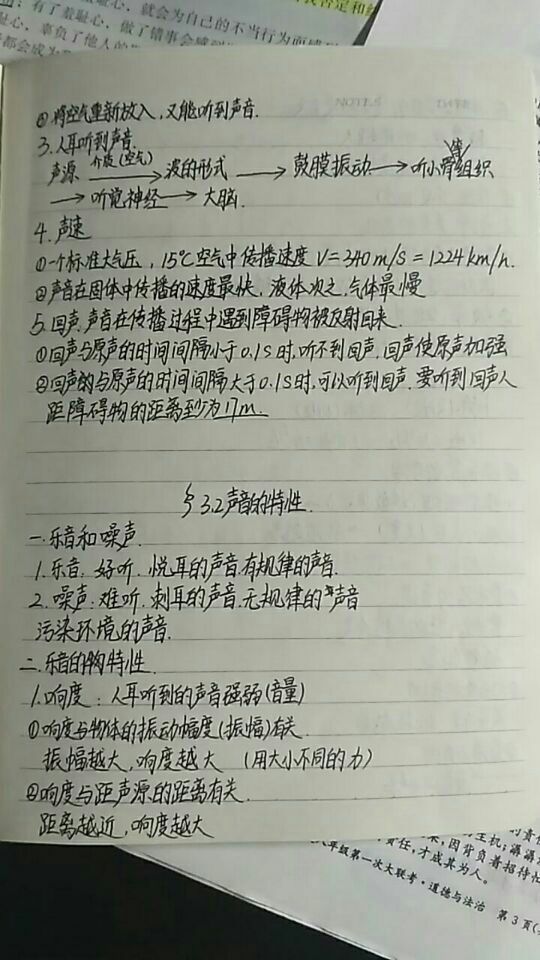 有了羞耻心，就会为自己的不当行为而感
耻心，辜负了他人的
NOTES
②将空气重新放入，又能听到声音.
3.人耳听到声音.
声源 介质(空气) → 波的形式 → 鼓膜振动 → 听小骨等组织
→ 听觉神经 → 大脑.
4.声速
①一个标准大气压，15℃空气中传播速度V=340m/s=1224km/h.
②声音在固体中传播的速度最快，液体次之,气体最慢
5.回声.声音在传播过程中遇到障碍物被反射回来.
①回声与原声的时间间隔小于0.1s时,听不到回声,回声使原声加强
②回声与原声的时间间隔大于0.1s时,可以听到回声.要听到回声人
距障碍物的距离至少为17m.
§3.2声音的特性.
一.乐音和噪声.
1.乐音:好听.悦耳的声音.有规律的声音.
2.噪声:难听.刺耳的声音.无规律的声音
污染环境的声音.
二.乐音的特性.
1.响度：人耳听到的声音强弱(音量)
①响度与物体的振动幅度(振幅)有关.
振幅越大,响度越大 (用大小不同的力)
②响度与距声源的距离有关.
距离越近,响度越大
因背负着招待
责任，才成其为人。
年级第一次大联考·道德与法治 第3页